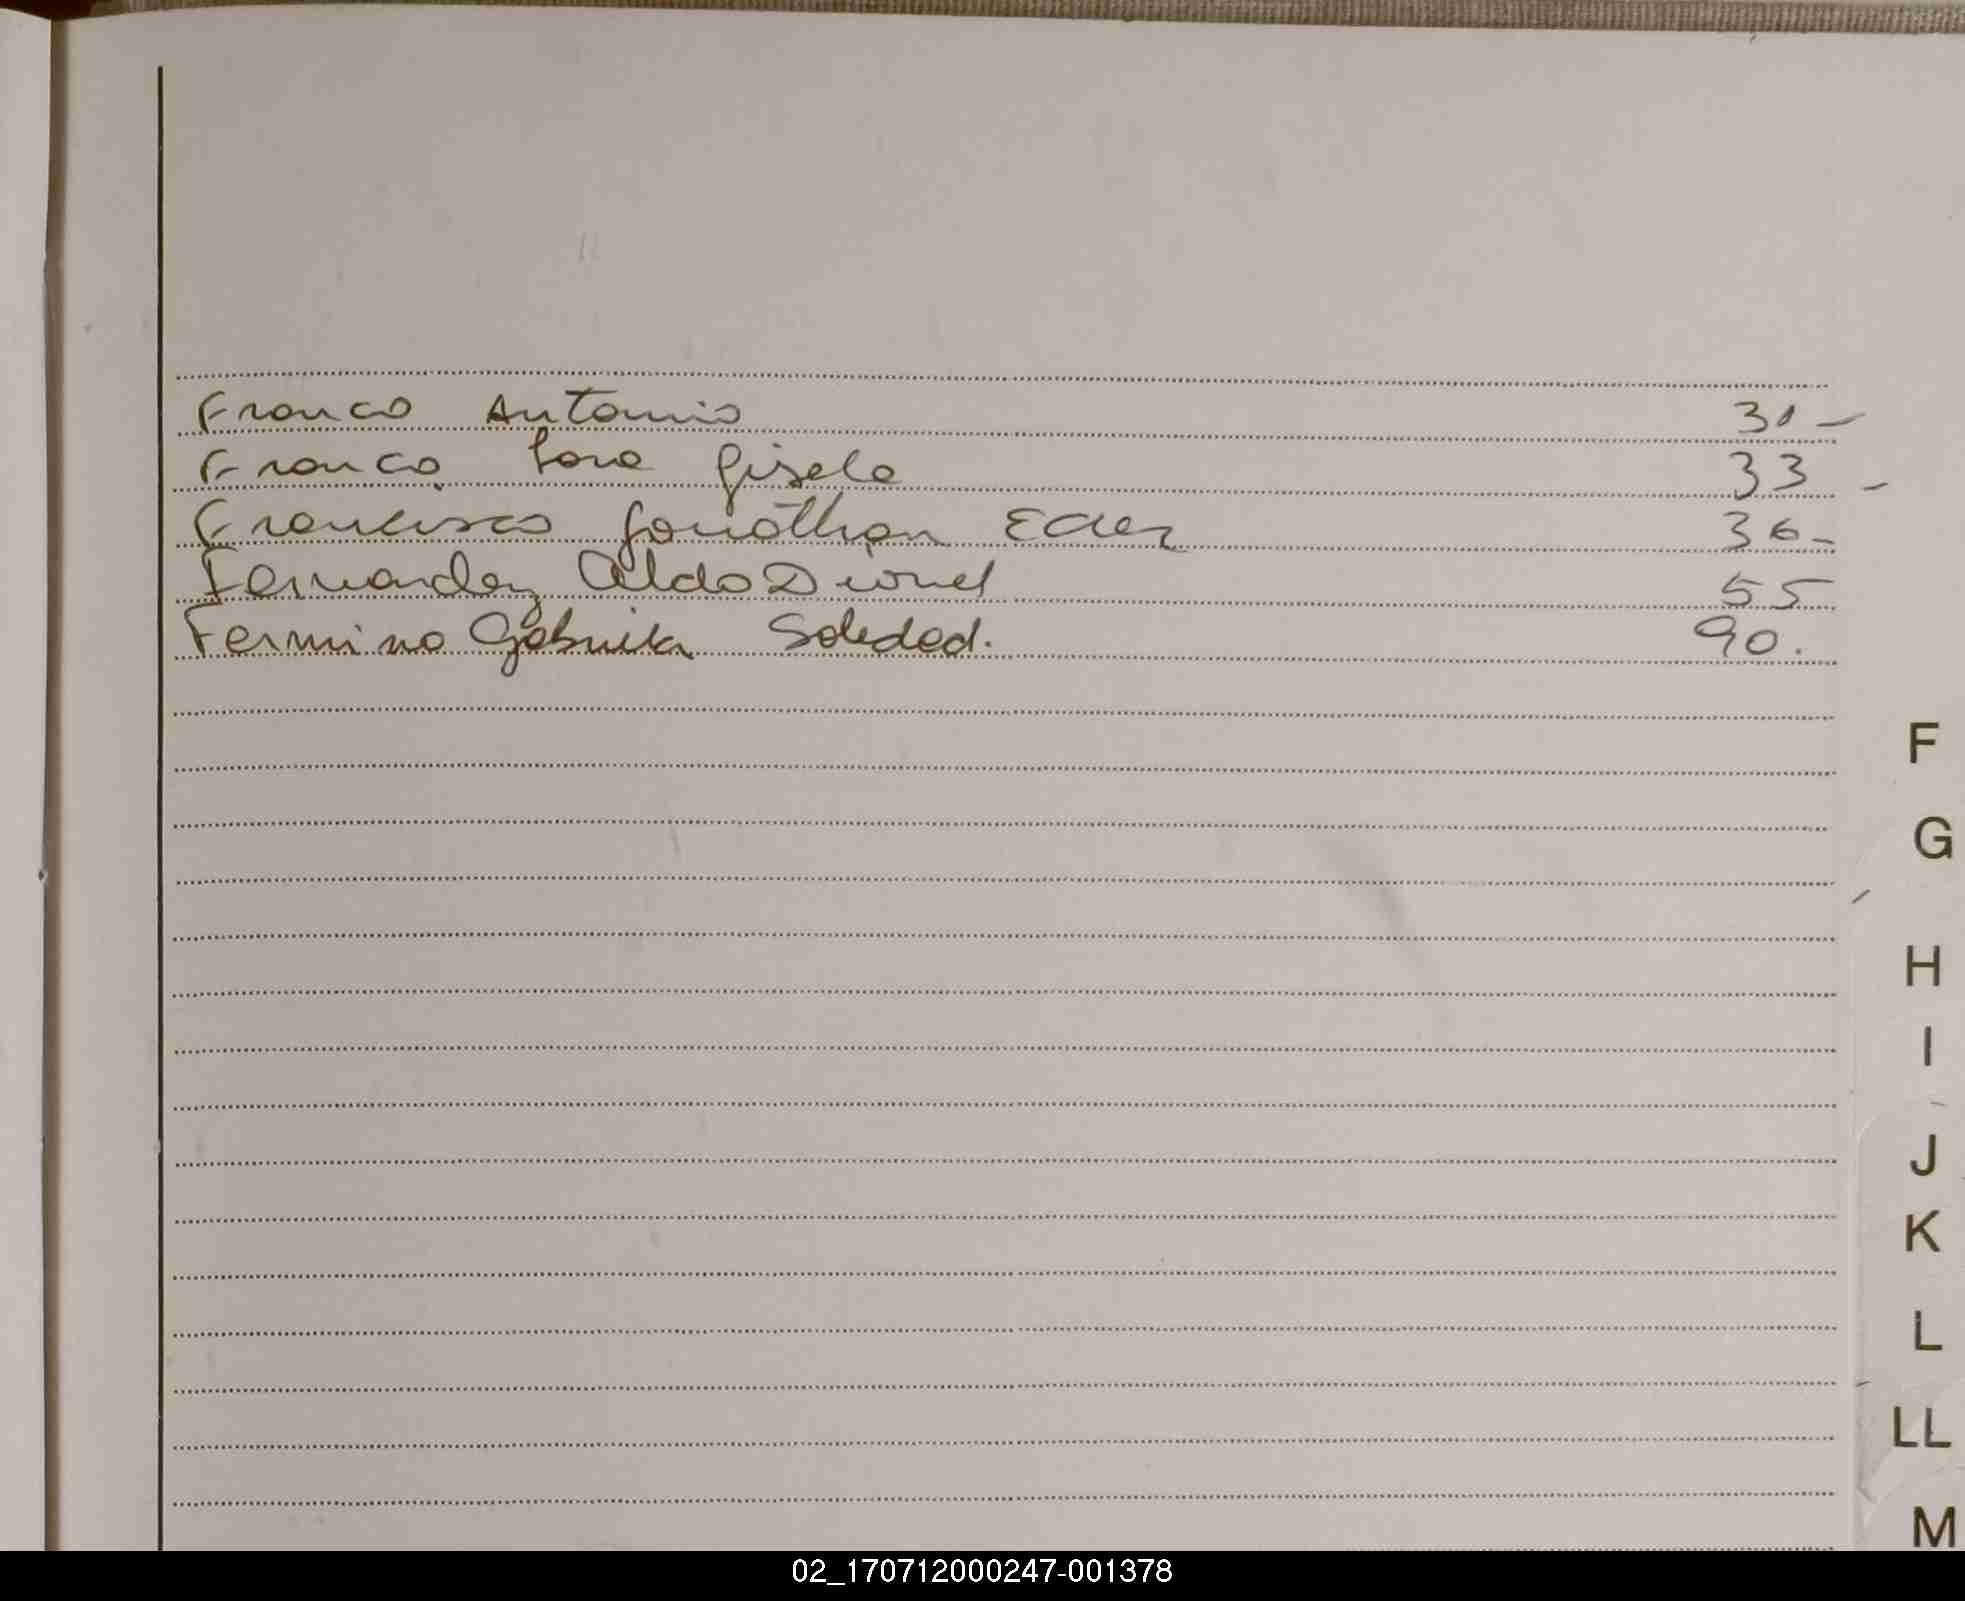 Franco Antonio 31 -
Franco Sara Gisela 33 -
Francisco Jonathan Eder 36 -
Fernandez Aldo Dionel 55
Fermino Gabriela Soledad. 90.
F
G
H
I
J
K
L
LL
M
02_170712000247-001378